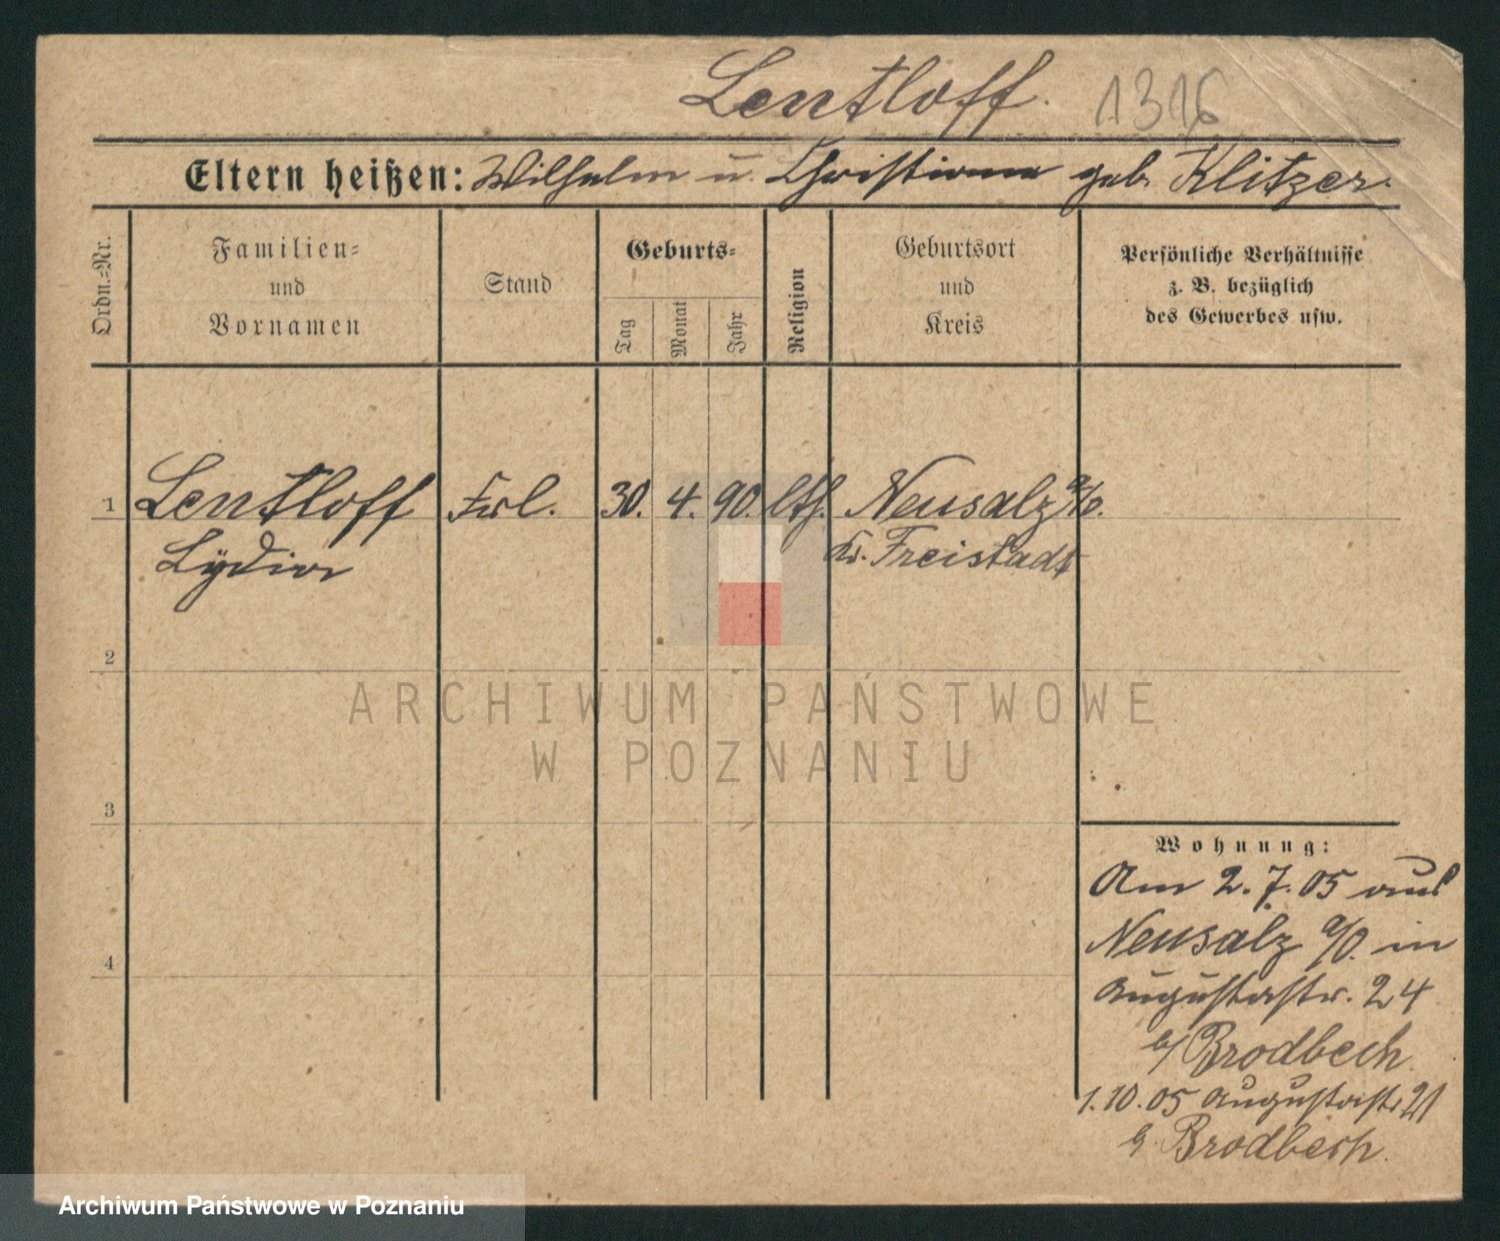 Lentloff. 1316
Eltern heißen: Wilhelm u. Christiane geb. Klitzer.
Ordn.-Nr.
Familien-
und
Vornamen
Stand
Geburts-
Tag
Monat
Jahr
Religion
Geburtsort
und
Kreis
Persönliche Verhältnisse
z. B. bezüglich
des Gewerbes usw.
1 Lentloff Frl. 30. 4. 90. lth. Neusalz a/O.
Lydia Kr. Freistadt
2
ARCHIWUM PAŃSTWOWE
W POZNANIU
3
Wohnung:
Am 2.7.05 aus
Neusalz a/O. in
Augustastr. 24
b/ Brodbech
4
1.10.05 Augustastr. 21
b. Brodbech.
Archiwum Państwowe w Poznaniu